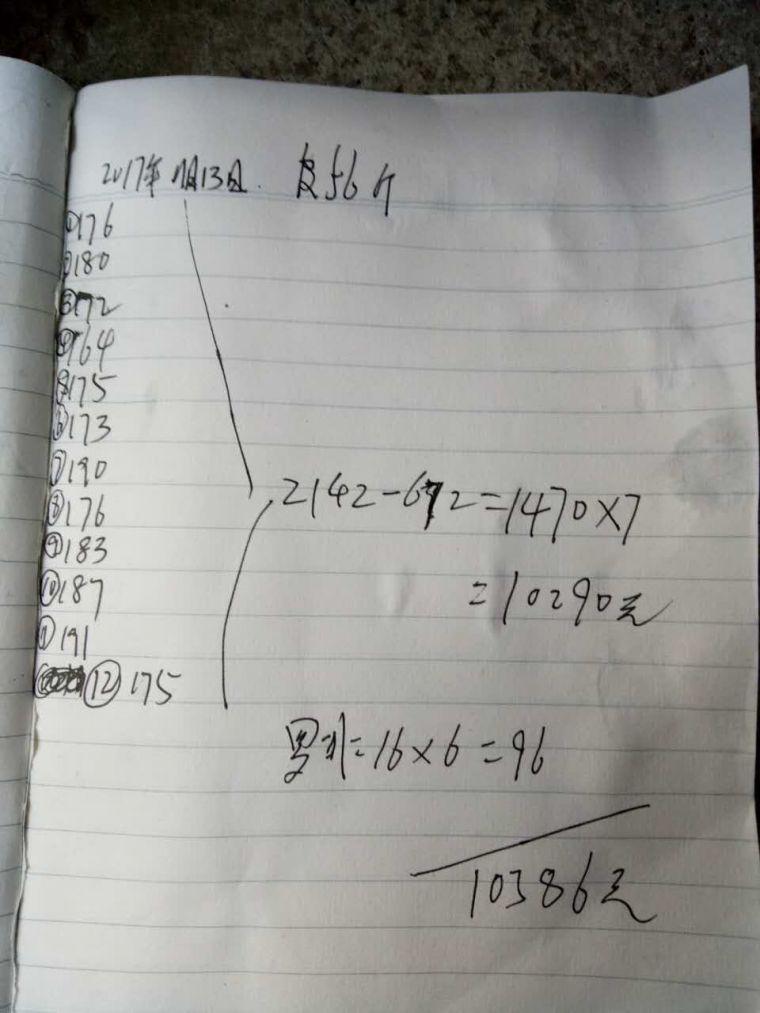 2017年11月13日. 皮56斤
①176
②180
③172
④164
⑤175
⑥173
⑦190
⑧176
⑨183
⑩187
⑪191
⑫175
2142-672=1470×7
=10290元
=16×6=96
10386元